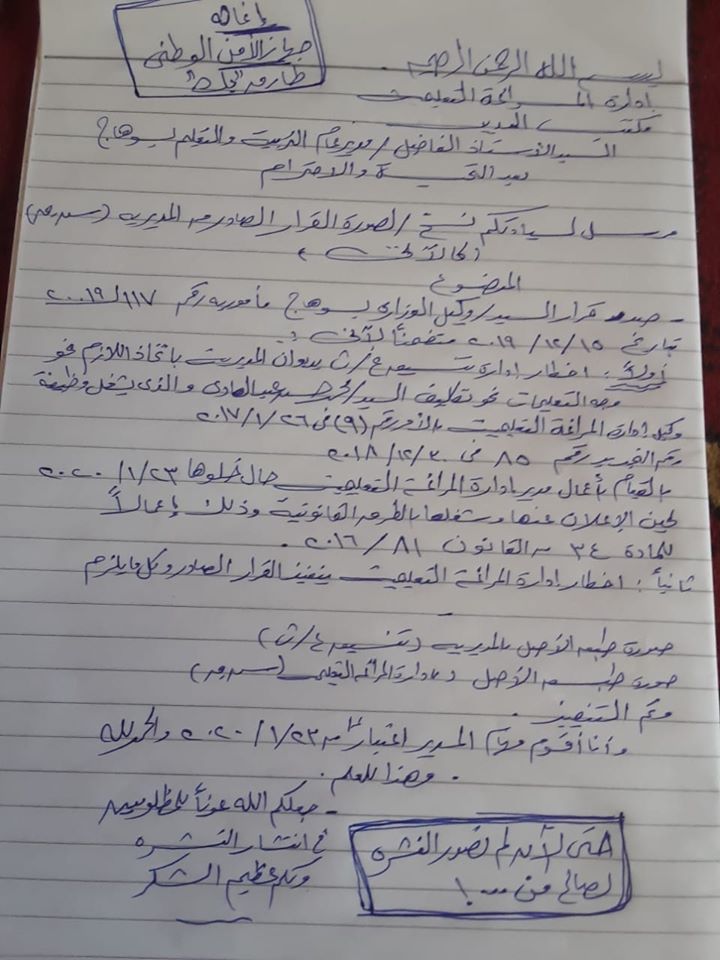 إغاثة
جهاز الأمن الوطنى
طارق بك
بسم الله الرحمن الرحيم
إدارة المراغة التعليمية
مكتب المدير
السيد الأستاذ الفاضل / مدير عام التربية والتعليم بسوهاج
بعد التحية والاحترام
مرسل لسيادتكم نسخ / لصورة القرار الصادر من المديرية
(كالآتى)
الموضوع
- صدر قرار السيد / وكيل الوزارة بسوهاج مأمورية رقم ١١٧ / ٢٠١٩
بتاريخ ١٥ / ١٢ / ٢٠١٩ متضمناً لآتى :
أولاً : اخطار إدارة تنسيق ع/ث بديوان المديرية باتخاذ اللازم نحو
وجه التعليمات نحو تكليف السيد / عبد الهادى والذى يشغل وظيفة
وكيل إدارة المراغة التعليمية بالأمر رقم (٩) فى ٢٦ / ١ / ٢٠١٧
رقم التجديد رقم ٨٥ فى ٣٠ / ١٢ / ٢٠١٨
بالقيام بأعمال مدير إدارة المراغة التعليمية حال خلوها ٢٣ / ١ / ٢٠٢٠
لحين الإعلان عنها وشغلها بالطرق القانونية وذلك إعمالاً
للمادة ٣٤ من القانون ٨١ / ٢٠١٦ .
ثانياً : اخطار إدارة المراغة التعليمية بتنفيذ القرار الصادر وكل ما يلزم
صورة طبق الأصل بالمديرية (تنسيق ع/ث)
صورة طبق الأصل بإدارة المراغة التعليمية
وتم التنفيذ .
وأنا أقوم مهام المدير اعتباراً من ٢٣ / ١ / ٢٠٢٠ والحمد لله
. وهذا للعلم .
- جعلكم الله عوناً للمظلومين
فى انتشار النشرة
ولكم عظيم الشكر
حتى الآن لم تصور النشرة
لصالح من ؟؟؟ !